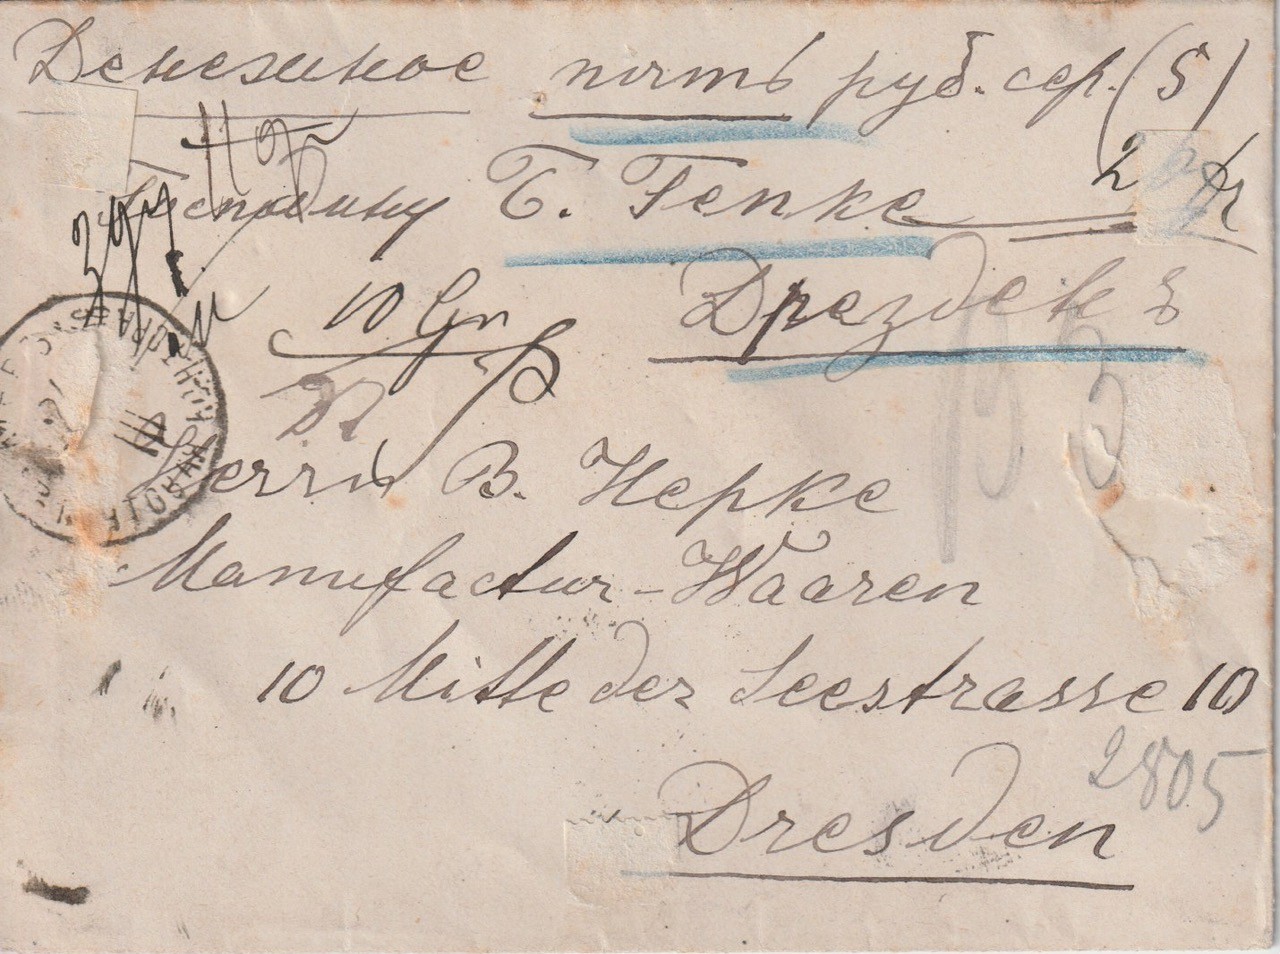 Денежное пять руб. сер. (5)
Господину Б. Гепке
10 Gr
Дрезденъ
Herrn B. Hepke
Manufactur-Waaren
10 Mitte der Seestrasse 10
2805
Dresden